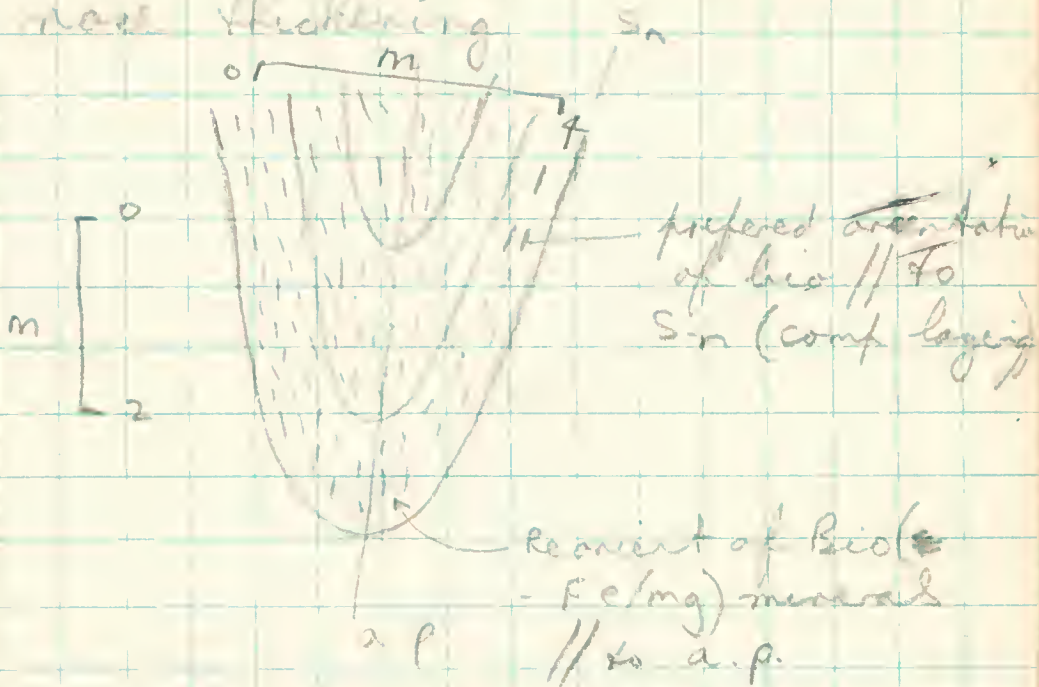 thickening
Sn
m
0
4
0
prefered orientatio
of bio // to
m
Sn (comp layering)
2
Reorient of Bio(
- Fe/mg) minerals
// to a.p.
a p